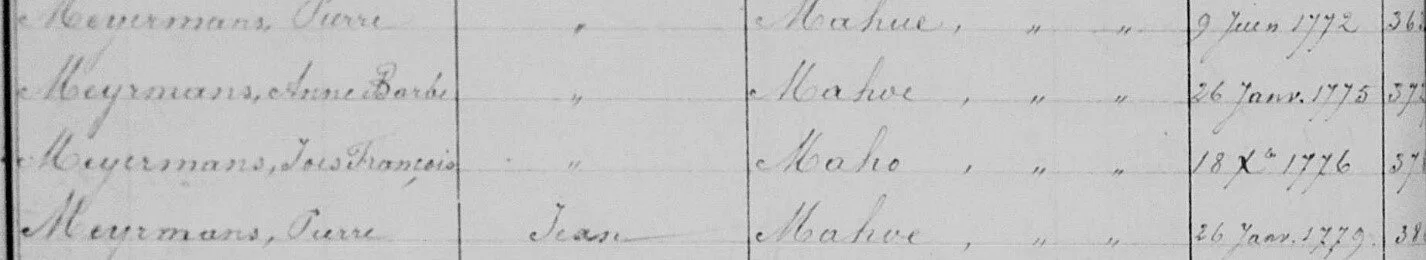 Meyermans, Pierre „ Mahue, „ „ 9 Juin 1772 36
Meyrmans, Anne Barbe „ Mahoe, „ „ 26 Janv. 1775 37
Meyermans, Joes François „ Maho, „ „ 18 Xbre 1776 37
Meyrmans, Pierre Jean Mahoe, „ „ 26 Janv. 1779. 38